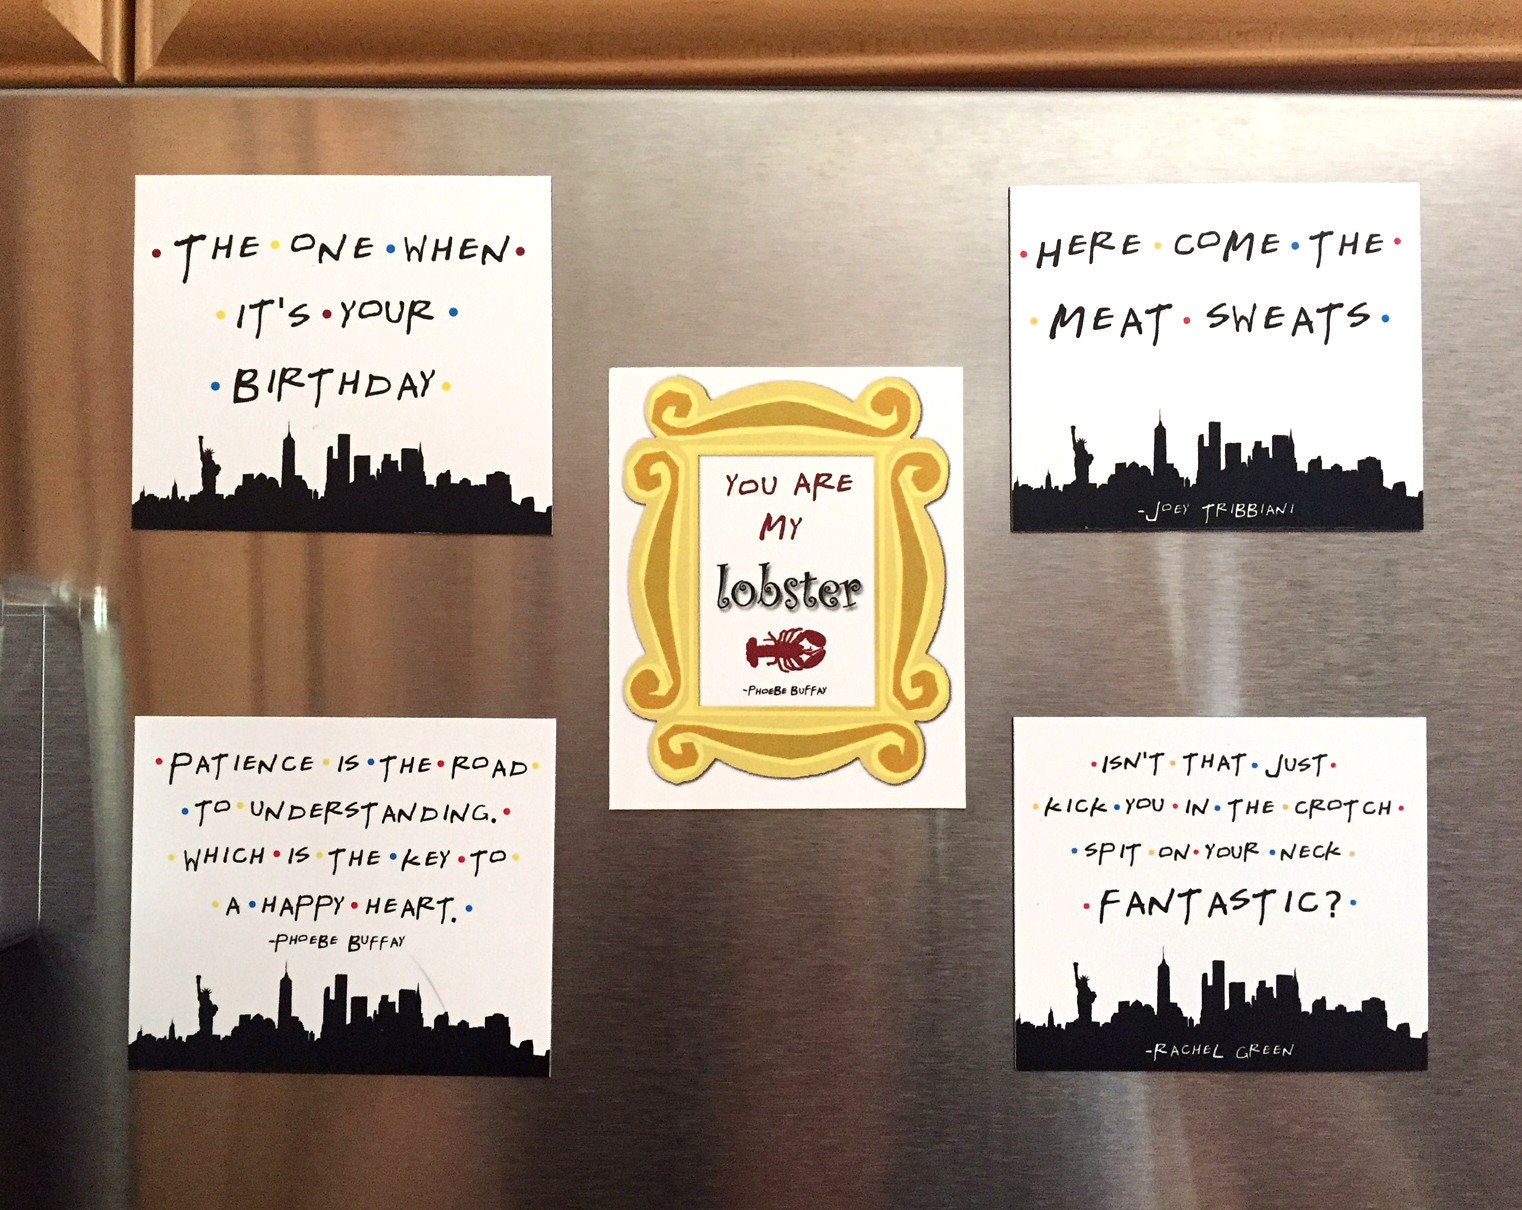 THE ONE WHEN
IT'S YOUR
BIRTHDAY
HERE COME THE
MEAT SWEATS
-JOEY TRIBBIANI
YOU ARE
MY
lobster
-PHOEBE BUFFAY
PATIENCE IS THE ROAD
TO UNDERSTANDING.
WHICH IS THE KEY TO
A HAPPY HEART.
-PHOEBE BUFFAY
ISN'T THAT JUST
KICK YOU IN THE CROTCH
SPIT ON YOUR NECK
FANTASTIC?
-RACHEL GREEN